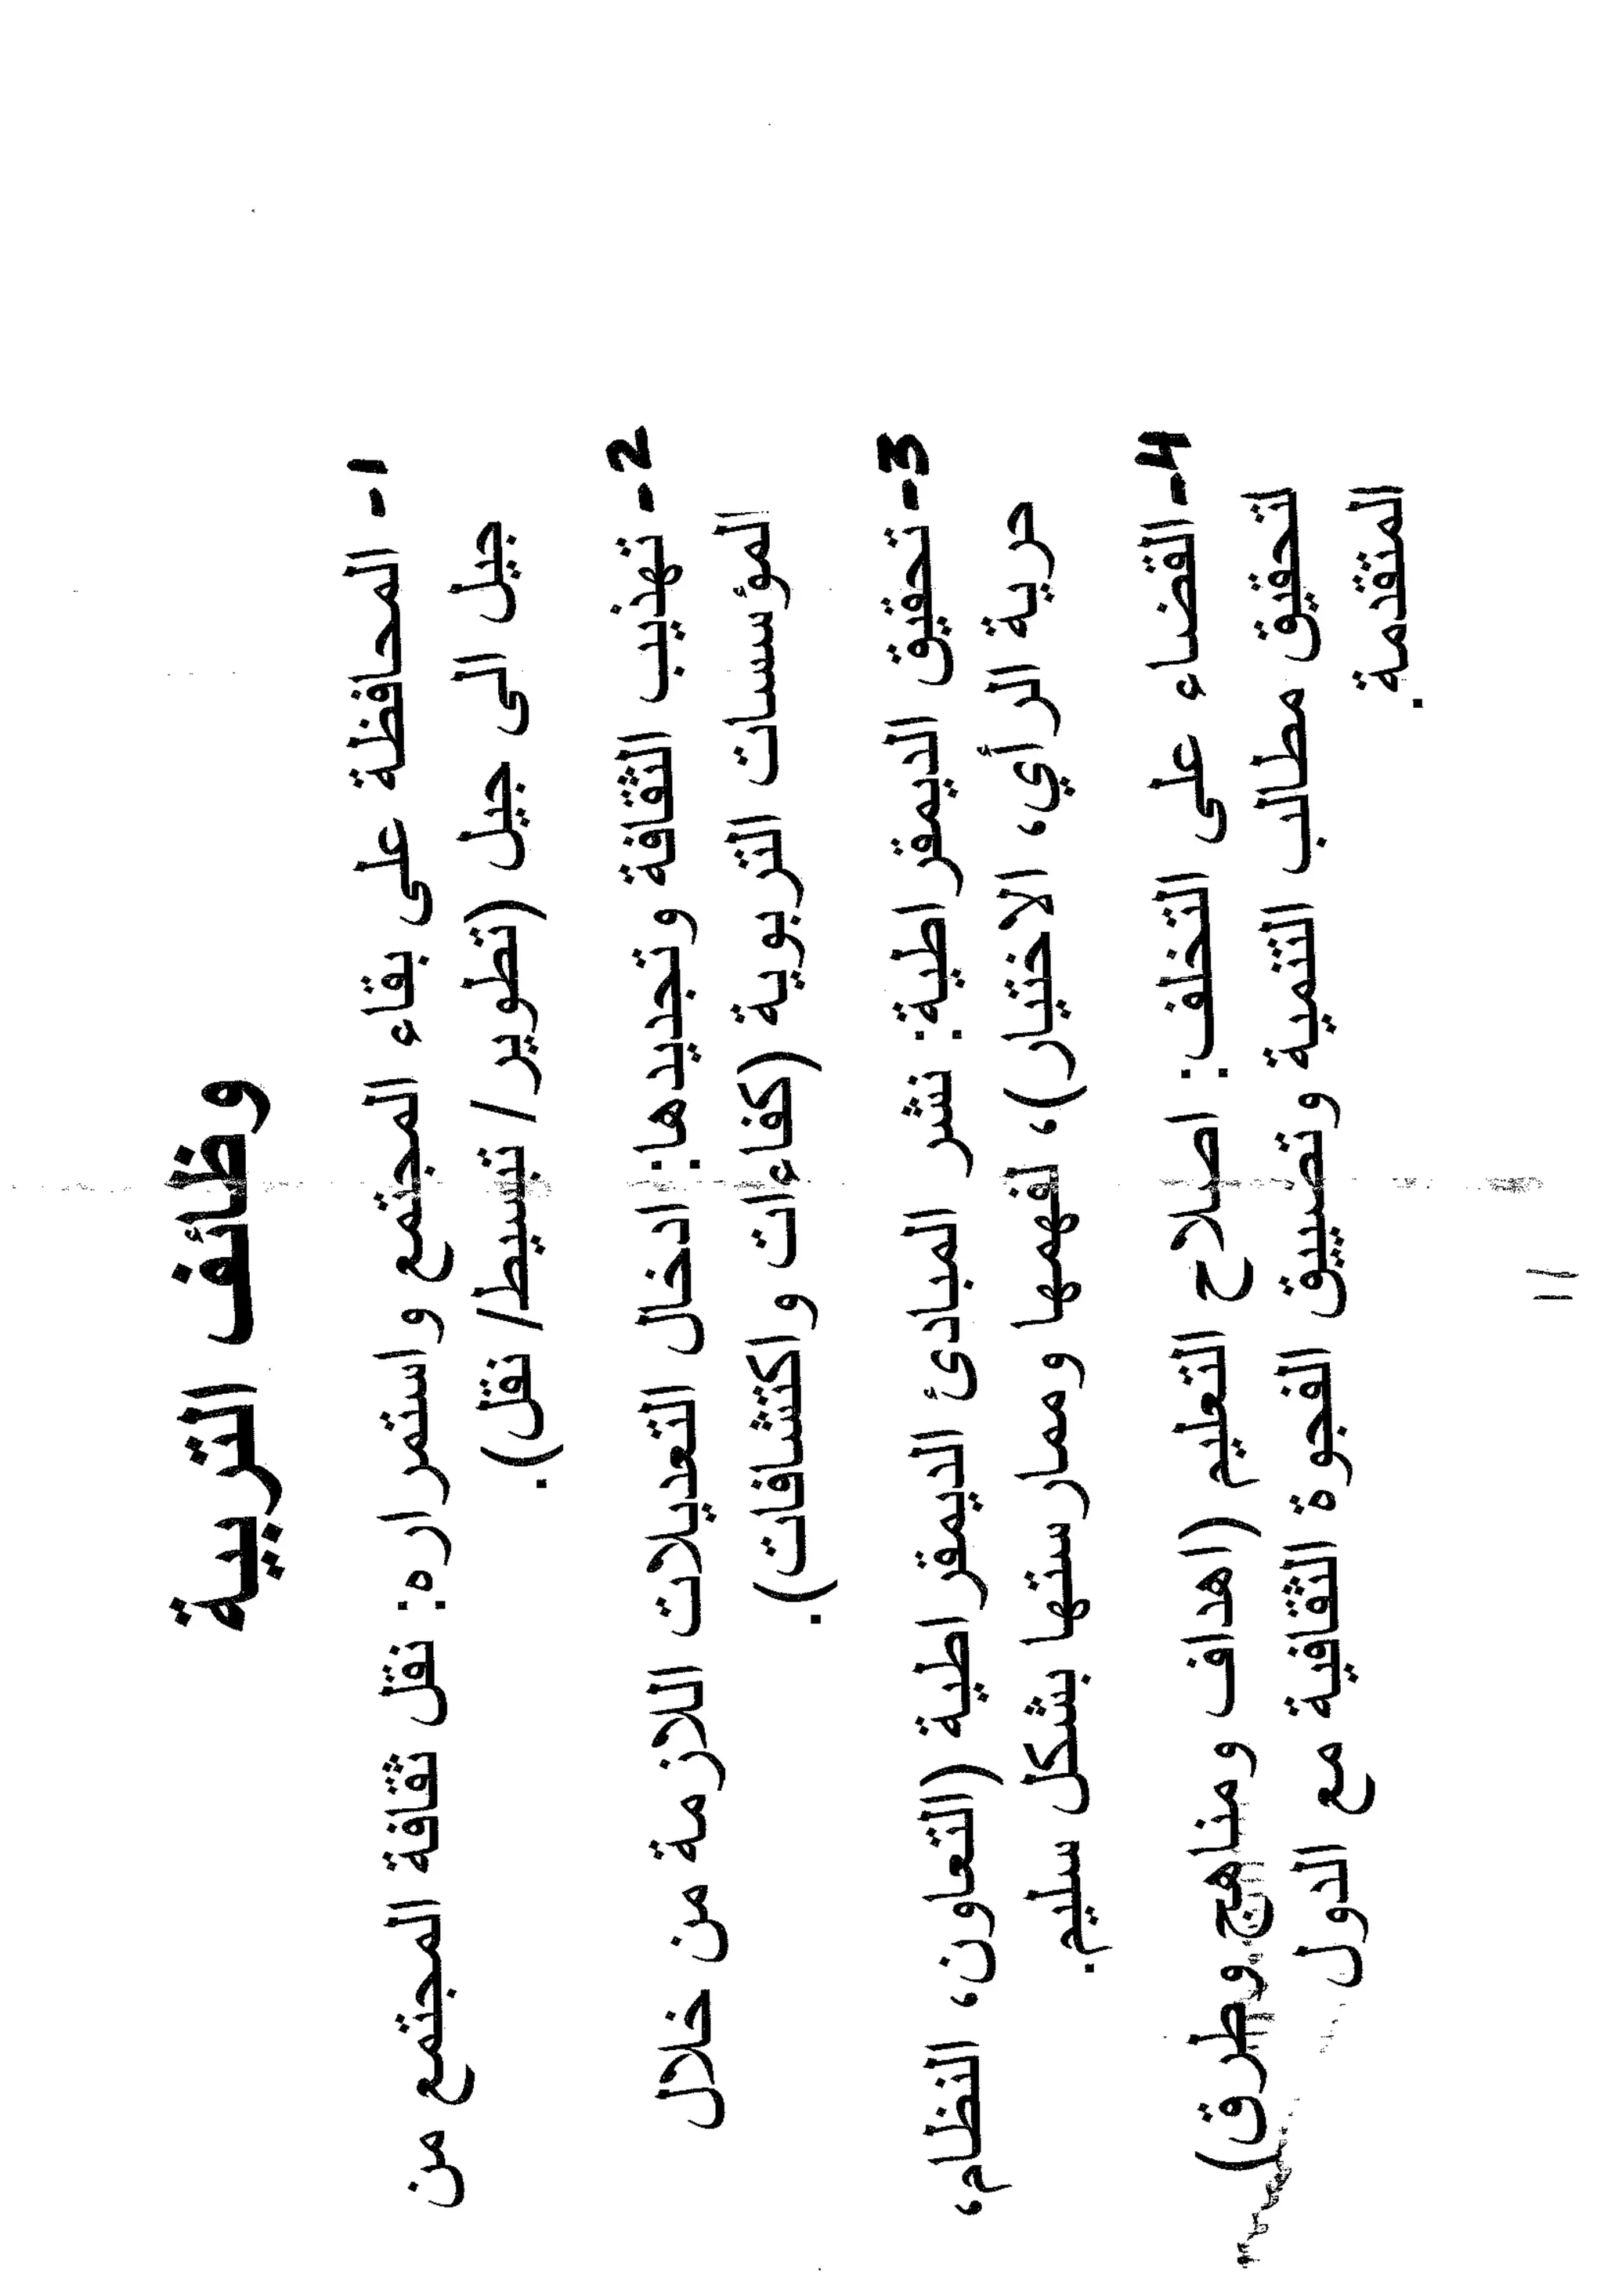 وظائف التربية
1- المحافظة على بقاء المجتمع واستمراره: نقل ثقافة المجتمع من
جيل الى جيل (تطوير/ تبسيط/ نقل).
2- تهذيب الثقافة وتجديدها: ادخال التعديلات اللازمة من خلال
المؤسسات التربوية (كفاءات واكتشافات).
3- تحقيق الديمقراطية: نشر المبادئ الديمقراطية (التعاون، النظام،
حرية الرأي، الاختيار)، لفهمها وممارستها بشكل سليم.
4- القضاء على التخلف: اصلاح التعليم (اهداف ومناهج وطرق)
لتحقيق مطالب التنمية وتضييق الفجوة الثقافية مع الدول
المتقدمة.
11